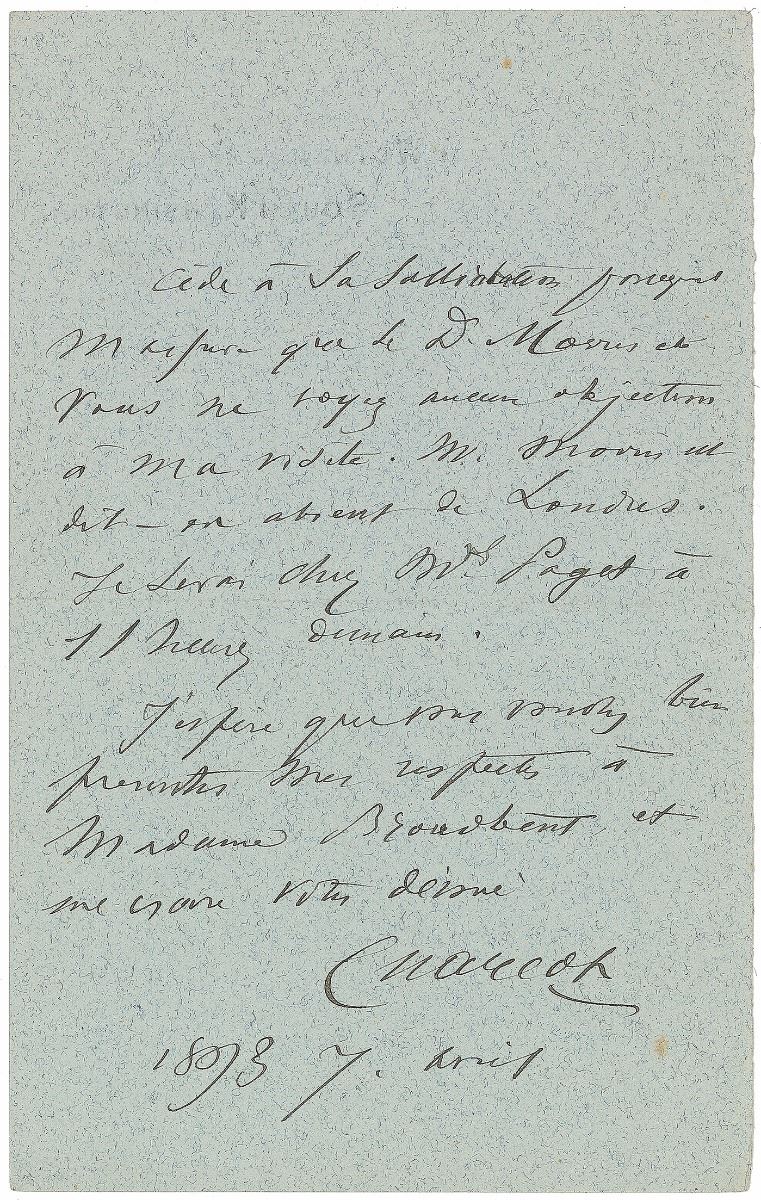 cédé à sa sollicitation
M'assure que le Dr. Morris et
Vous ne voyez aucune objection
à ma visite. M. Morris est
dit-on absent de Londres.
Je serai chez Mrs Paget à
11 heures demain.
J'espère que vous voudrez bien
présenter mes respects à
Madame Broadbent et
me croire votre dévoué
Charcot
1893 7. avril